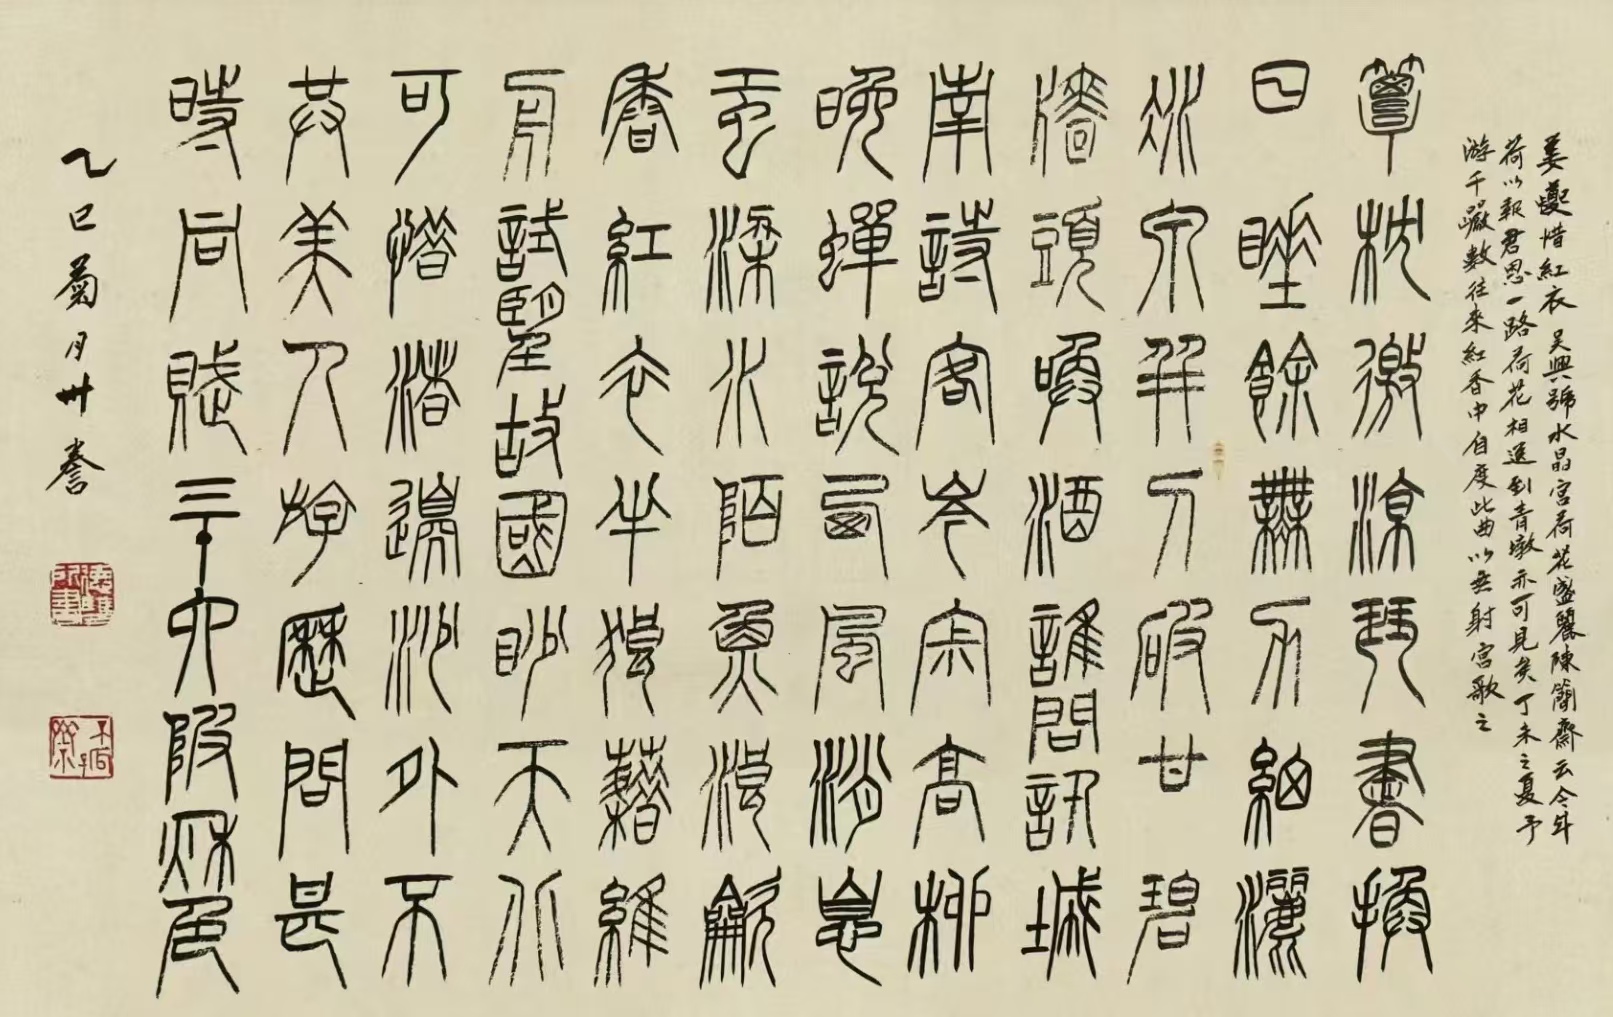 姜夔惜紅衣 吳興號水晶宮荷花盛麗陳簡齋云今年
荷以報君恩一路荷花相送到青墩亦可見矣丁未之夏予
游千巖數往來紅香中自度此曲以無射宮歌之
簟枕邀涼琴書換
日睡餘無力細灑
冰泉并刀破甘碧
牆頭喚酒誰問訊城
南詩客岑寂高柳
晚蟬說西風消息
虹梁水陌魚浪吹
香紅衣半狼藉維
舟試望故國眇天北
可惜渚邊沙外不
共美人游歷問甚
時同賦三十六陂秋色
乙巳菊月卅 謄